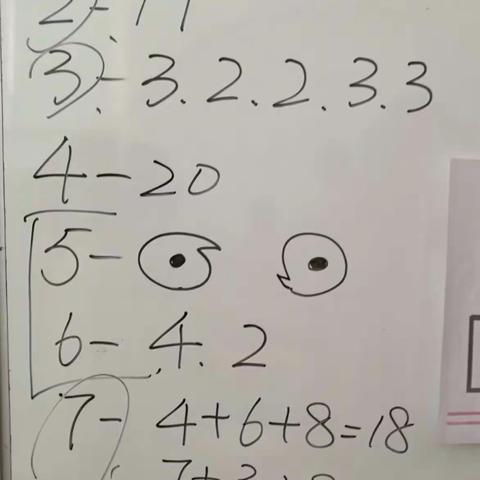 3 - 3.2.2.3.3
4 - 20
5 -
6 - 4. 2
7 - 4+6+8=18